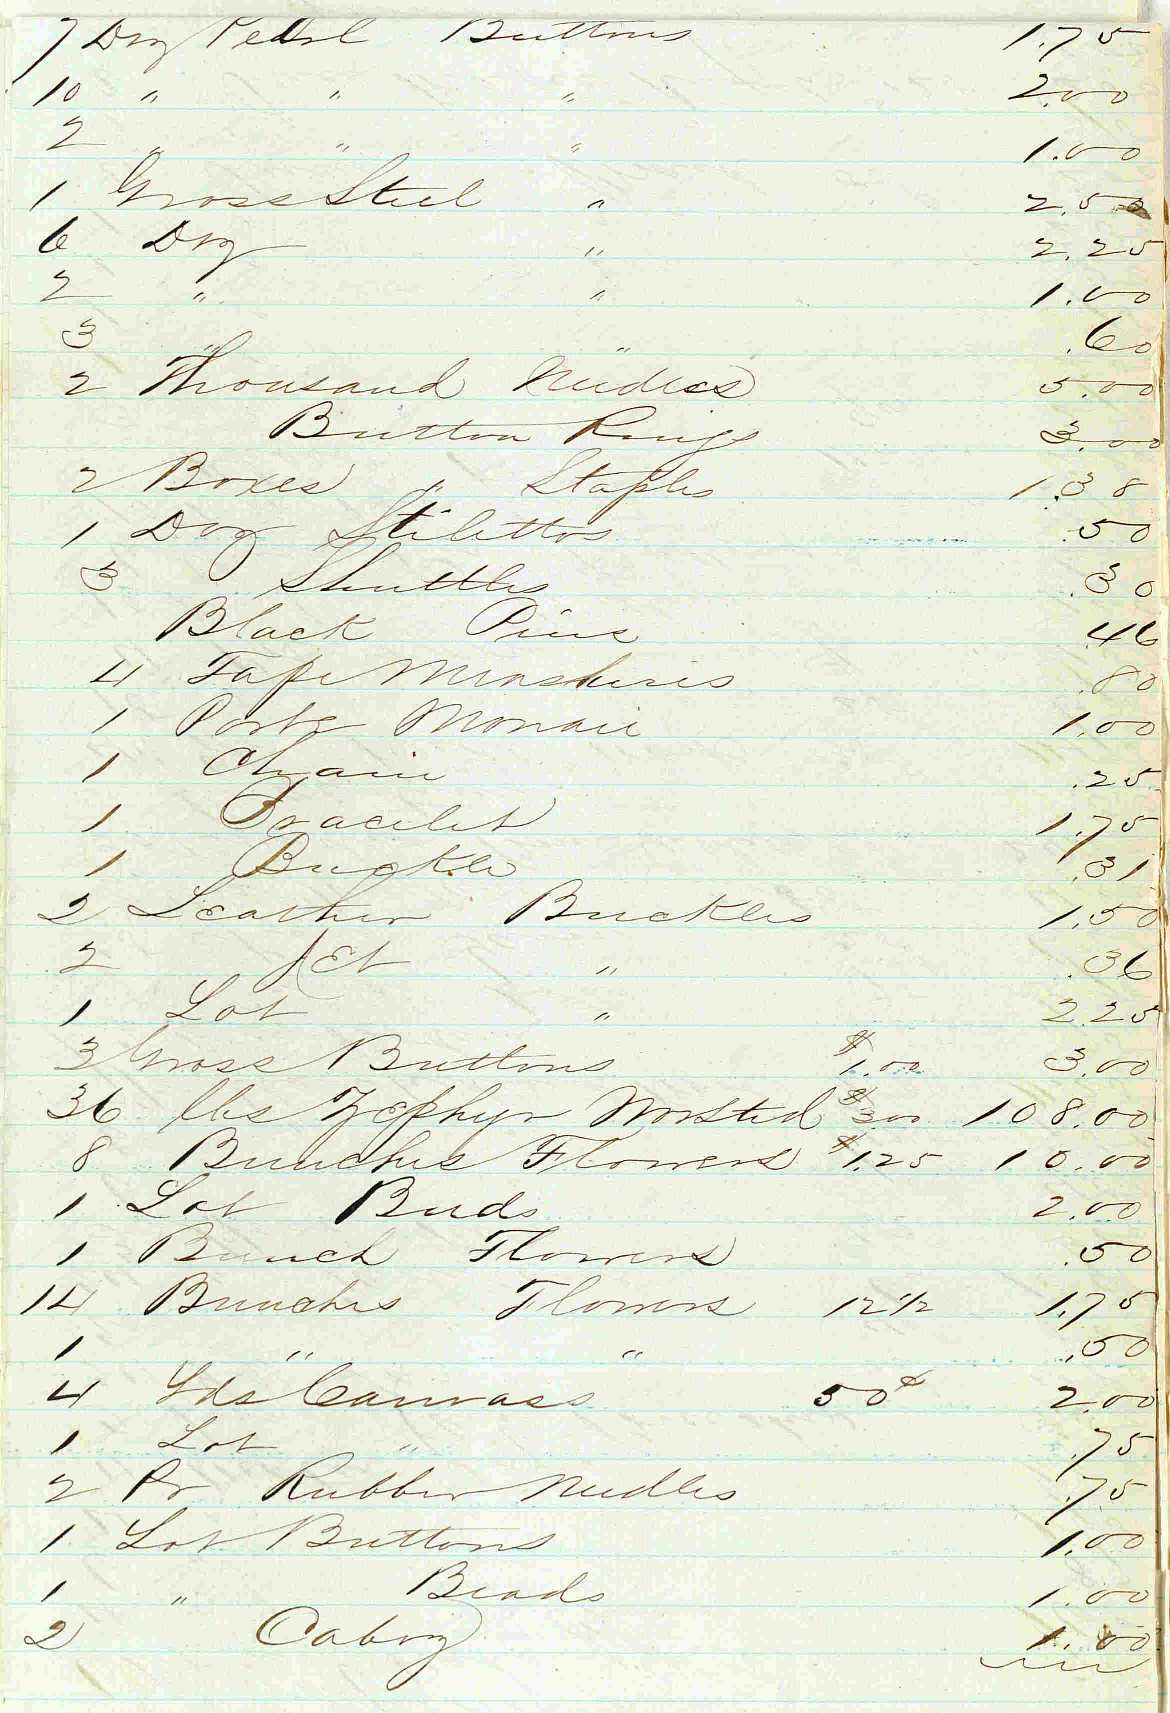 7 Doz Pearl Buttons 1.75
10 " " " 2.00
2 " " " 1.00
1 Gross Steel " 2.50
6 Doz " 2.25
2 " " 1.00
3 " " .60
2 Thousand Needles 5.00
Button Rings 3.00
2 Boxes " Staples 1.38
1 Doz Stilettos .50
3 Shuttles .30
Black Pins .46
4 Tape Measheres .80
1 Porte Monaie 1.00
1 Chain .25
1 Bracelet 1.75
1 Buckle .31
2 Leather Buckles 1.50
2 Jet " .36
1 Lot " 2.25
3 Gross Buttons $1.00 3.00
36 lbs Zephyr Worsted $3.00 108.00
8 Bunches Flowers $1.25 10.00
1 Lot Buds 2.00
1 Bunch Flowers .50
14 Bunches Flowers 12 1/2 1.75
1 " " .50
4 Yds Canvass 50¢ 2.00
1 Lot " .75
2 Pr Rubber Needles .75
1 Lot Buttons 1.00
1 " Beads 1.00
2 1.00